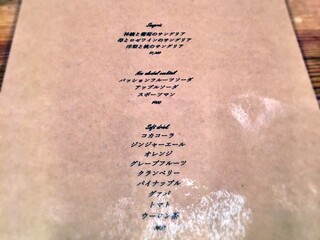 Sangria
林檎と葡萄のサングリア
苺とロゼワインのサングリア
洋梨と桃のサングリア
Non alcohol cocktail
パッションフルーツソーダ
アップルソーダ
スポーツマン
Soft drink
コカコーラ
ジンジャーエール
オレンジ
グレープフルーツ
クランベリー
パイナップル
グァバ
トマト
ウーロン茶